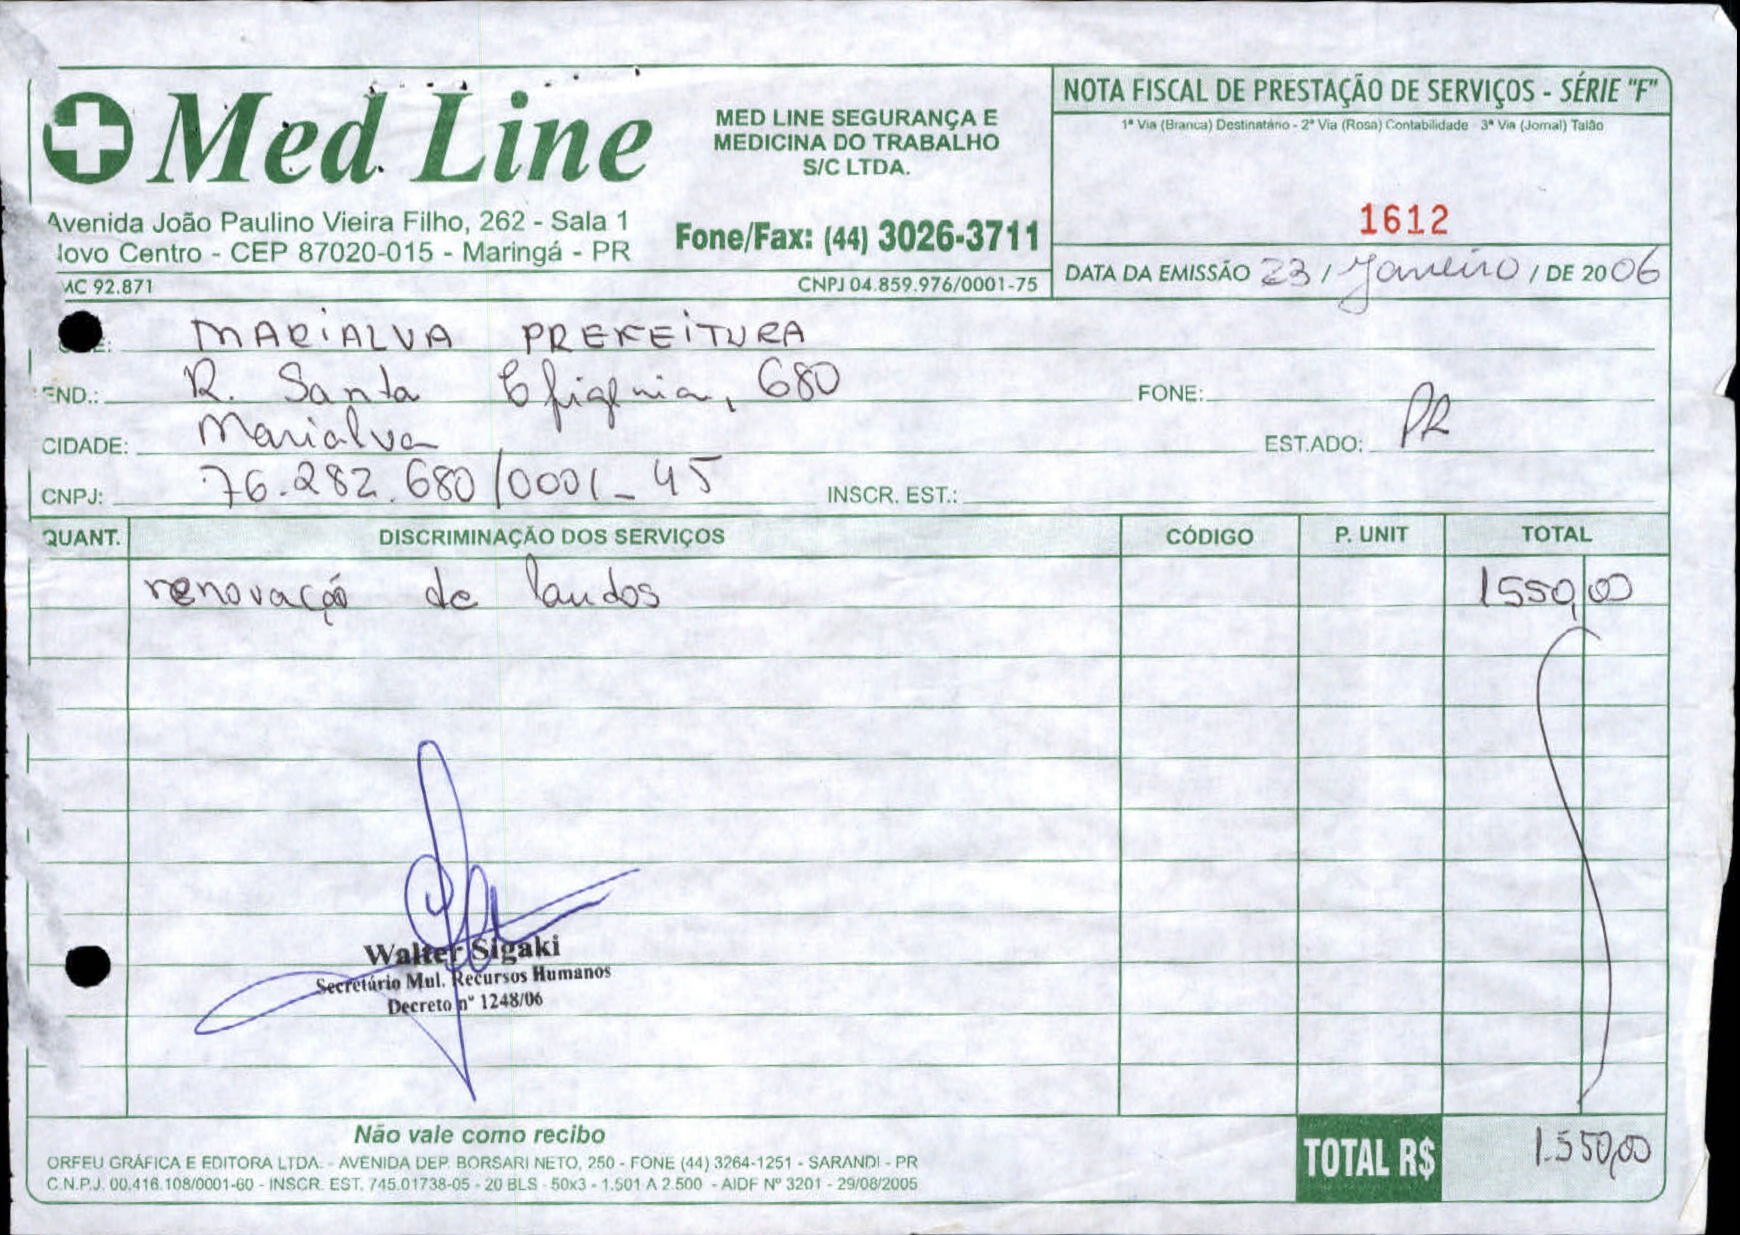 Med Line
MED LINE SEGURANÇA E
MEDICINA DO TRABALHO
S/C LTDA.
Avenida João Paulino Vieira Filho, 262 - Sala 1
Novo Centro - CEP 87020-015 - Maringá - PR
Fone/Fax: (44) 3026-3711
MC 92.871
CNPJ 04.859.976/0001-75
NOTA FISCAL DE PRESTAÇÃO DE SERVIÇOS - SÉRIE "F"
1ª Via (Branca) Destinatário - 2ª Via (Rosa) Contabilidade - 3ª Via (Jornal) Talão
1612
DATA DA EMISSÃO 23 / Janeiro / DE 2006
MARIALVA PREFEITURA
END.: R. Santa Efigênia, 680 FONE:
CIDADE: Marialva ESTADO: PR
CNPJ: 76.282.680/0001-45 INSCR. EST.:
QUANT. DISCRIMINAÇÃO DOS SERVIÇOS CÓDIGO P. UNIT TOTAL
renovação de laudos 1550,00
Walter Sigaki
Secretário Mul. Recursos Humanos
Decreto nº 1248/06
Não vale como recibo
ORFEU GRÁFICA E EDITORA LTDA. - AVENIDA DEP. BORSARI NETO, 250 - FONE (44) 3264-1251 - SARANDI - PR
C.N.P.J. 00.416.108/0001-60 - INSCR. EST. 745.01738-05 - 20 BLS - 50x3 - 1.501 A 2.500 - AIDF Nº 3201 - 29/08/2005
TOTAL R$ 1.550,00